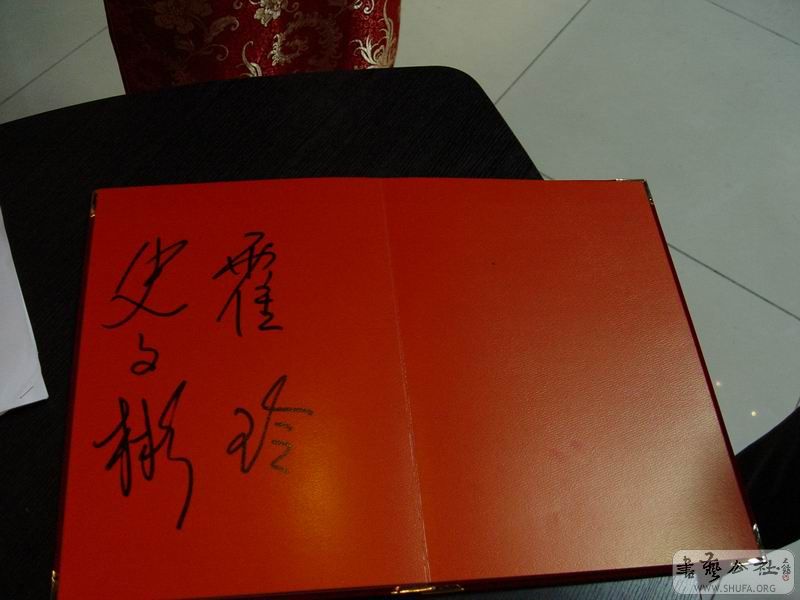 霍玲
史文彬
書藝公社
WWW.SHUFA.ORG